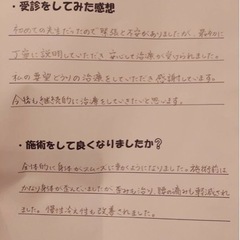 ・受診をしてみた感想
初めての先生だったので緊張と不安がありましたが、最初に
丁寧に説明していただき 安心して治療が受けられました。
私の要望どうりの治療をしていただき感謝しています。
今後も継続的に治療をしていきたいと思います。
・施術をして良くなりましたか？
全体的に身体がスムーズに動かようになりました。施術前は
かなり身体が歪んでいましたが 歪みも治り 腰の痛みも軽減され
ました。慢性冷え性も改善されました。